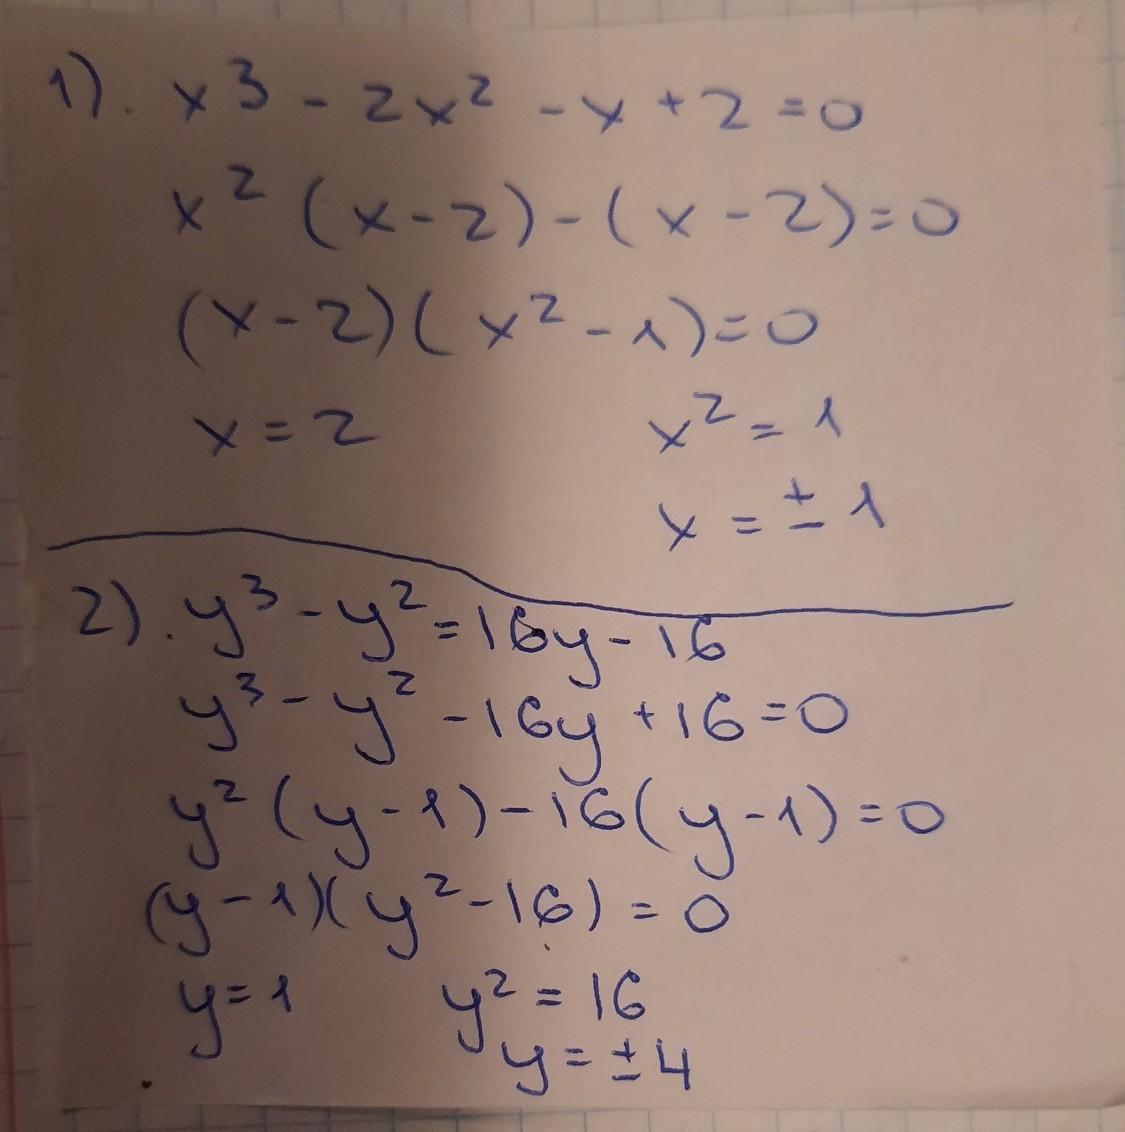 1). x³ - 2x² - x + 2 = 0
x² (x - 2) - (x - 2) = 0
(x - 2)(x² - 1) = 0
x = 2 x² = 1
x = ± 1
2). y³ - y² = 16y - 16
y³ - y² - 16y + 16 = 0
y² (y - 1) - 16(y - 1) = 0
(y - 1)(y² - 16) = 0
y = 1 y² = 16
y = ± 4